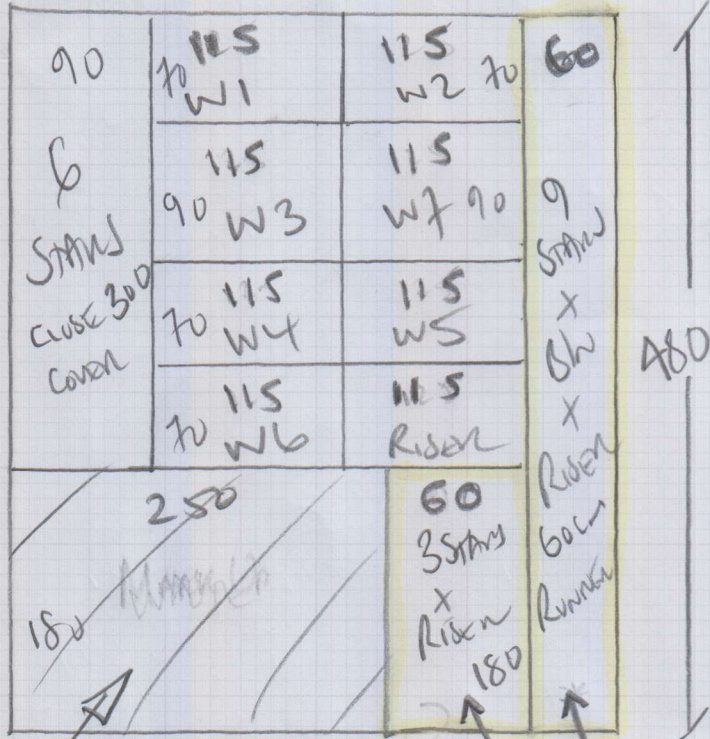 90
6
STAIRS
CLOSE 300
COVER
115
70
W1
115
W2 70
115
90 W3
115
W7 90
115
70 W4
115
W5
115
70 W6
115
RISER
60
9
STAIRS
X
B/W
X
RISER
60cm
RUNNER
480
250
180
60
3 STAIRS
X
RISER
180